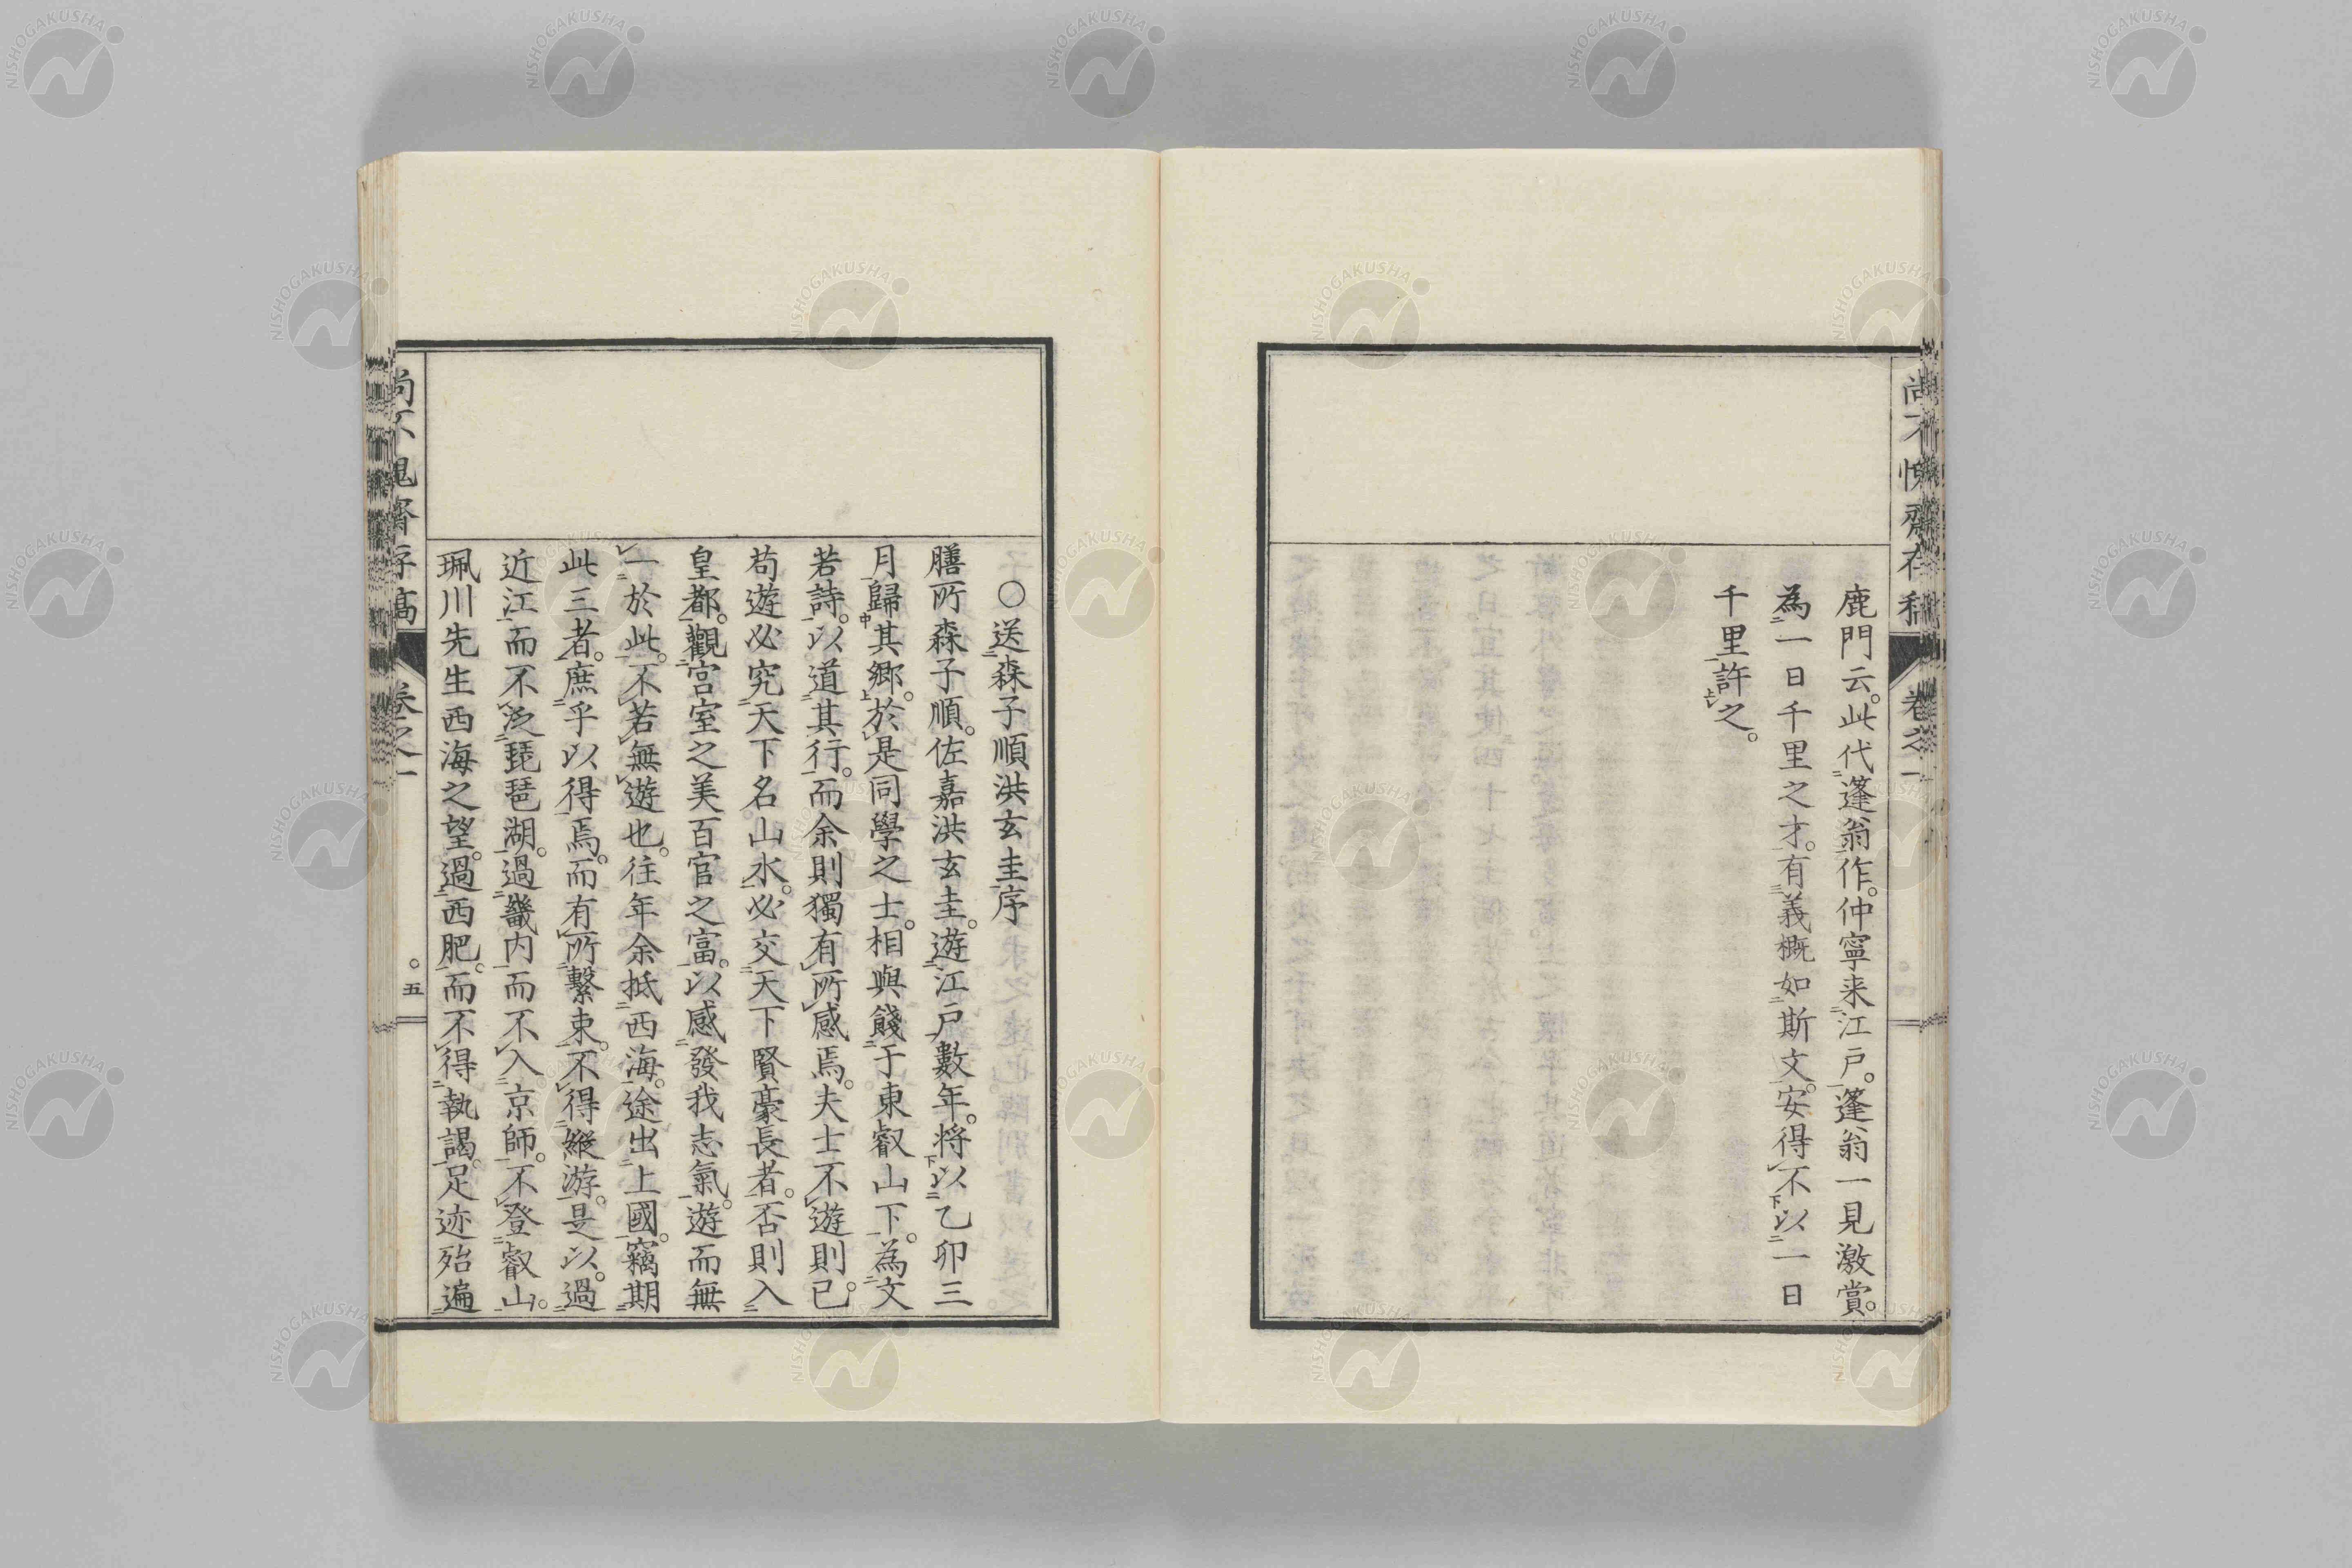 鹿門云。此代蓬翁作。仲寧来江戸。蓬翁一見激賞。
為一日千里之才。有義概如斯文。安得不以一日
千里許之。
○送森子順洪玄圭序
膳所森子順。佐嘉洪玄圭。遊江戸數年。将以乙卯三
月歸其郷。於是同學之士。相與餞于東叡山下。為文
若詩。以道其行。而余則獨有所感焉。夫士不遊則已。
苟遊必究天下名山水。必交天下賢豪長者。否則入
皇都。觀宮室之美百官之富。以感發我志氣。遊而無
一於此。不若無遊也。往年余抵西海。途出上國。竊期
此三者。庶乎以得焉。而有所繫束。不得縱游。是以。過
近江而不泛琵琶湖。過畿内而不入京師。不登叡山。
珮川先生西海之望。過西肥。而不得執謁。足迹殆遍
尚不愧齋存稿 卷之一 五
NISHOGAKUSHA